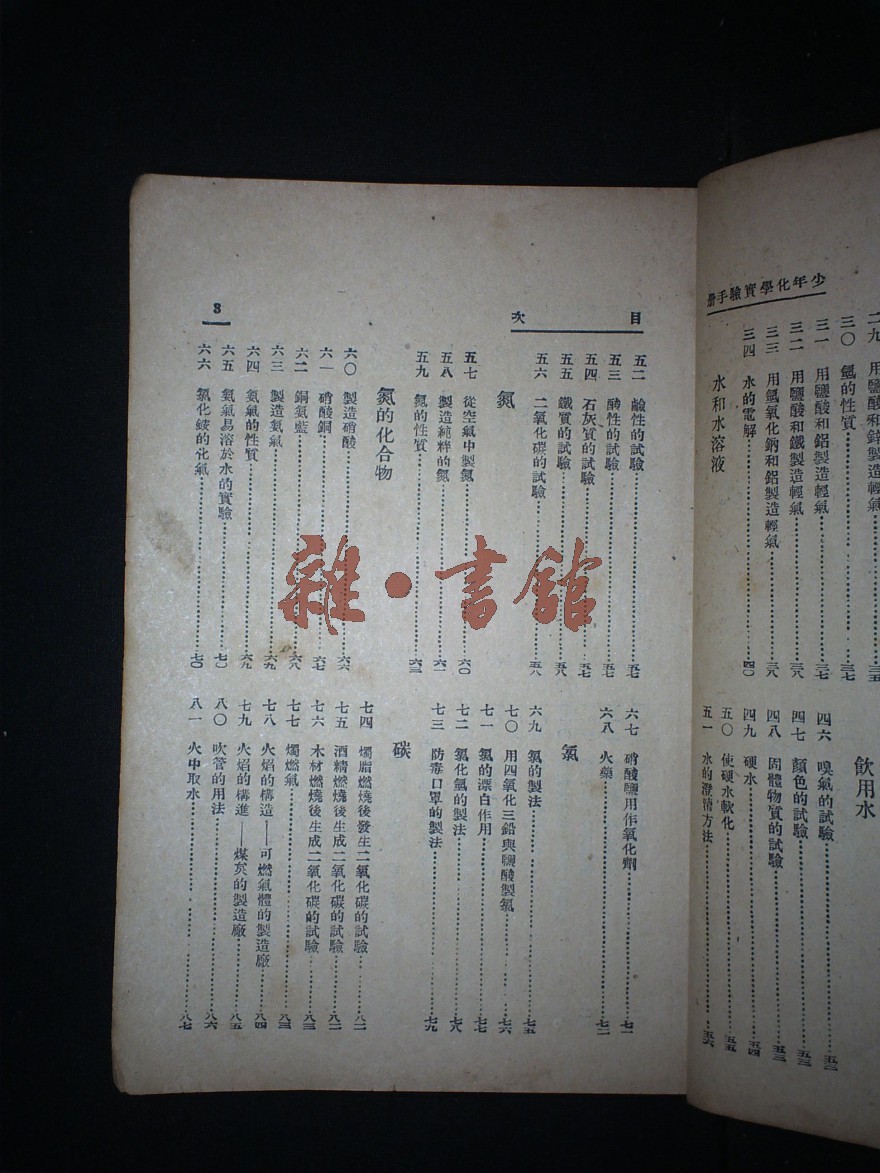 少年化學實驗手冊
三〇 氫的性質……三七
三一 用鹽酸和鋁製造輕氣……三七
三二 用鹽酸和鐵製造輕氣……三八
三三 用氫氧化鈉和鋁製造輕氣……三八
三四 水的電解……四〇
水和水溶液
飲用水
四六 嗅氣的試驗……五三
四七 顏色的試驗……五三
四八 固體物質的試驗……五三
四九 硬水……五四
五〇 使硬水軟化……五五
五一 水的澄清方法……五六
目次
3
五二 鹼性的試驗……五七
五三 酸性的試驗……五七
五四 石灰質的試驗……五七
五五 鐵質的試驗……五八
五六 二氧化碳的試驗……五八
氮
五七 從空氣中製氮……六〇
五八 製造純粹的氮……六一
五九 氮的性質……六三
氮的化合物
六〇 製造硝酸……六六
六一 硝酸銅……六七
六二 銅氨藍……六八
六三 製造氨氣……六九
六四 氨氣的性質……六九
六五 氨氣易溶於水的實驗……七〇
六六 氯化銨的化氣……七〇
六七 硝酸鹽用作氧化劑……七一
六八 火藥……七二
氯
六九 氯的製法……七五
七〇 用四氧化三鉛與鹽酸製氯……七六
七一 氯的漂白作用……七七
七二 氯化氫的製法……七八
七三 防毒口罩的製法……七九
碳
七四 燭脂燃燒後發生二氧化碳的試驗……八二
七五 酒精燃燒後生成二氧化碳的試驗……八二
七六 木材燃燒後生成二氧化碳的試驗……八三
七七 燭燃氣……八三
七八 火焰的構造——可燃氣體的製造廠……八四
七九 火焰的構進——煤炱的製造廠……八五
八〇 吹管的用法……八六
八一 火中取水……八七
雜·書館